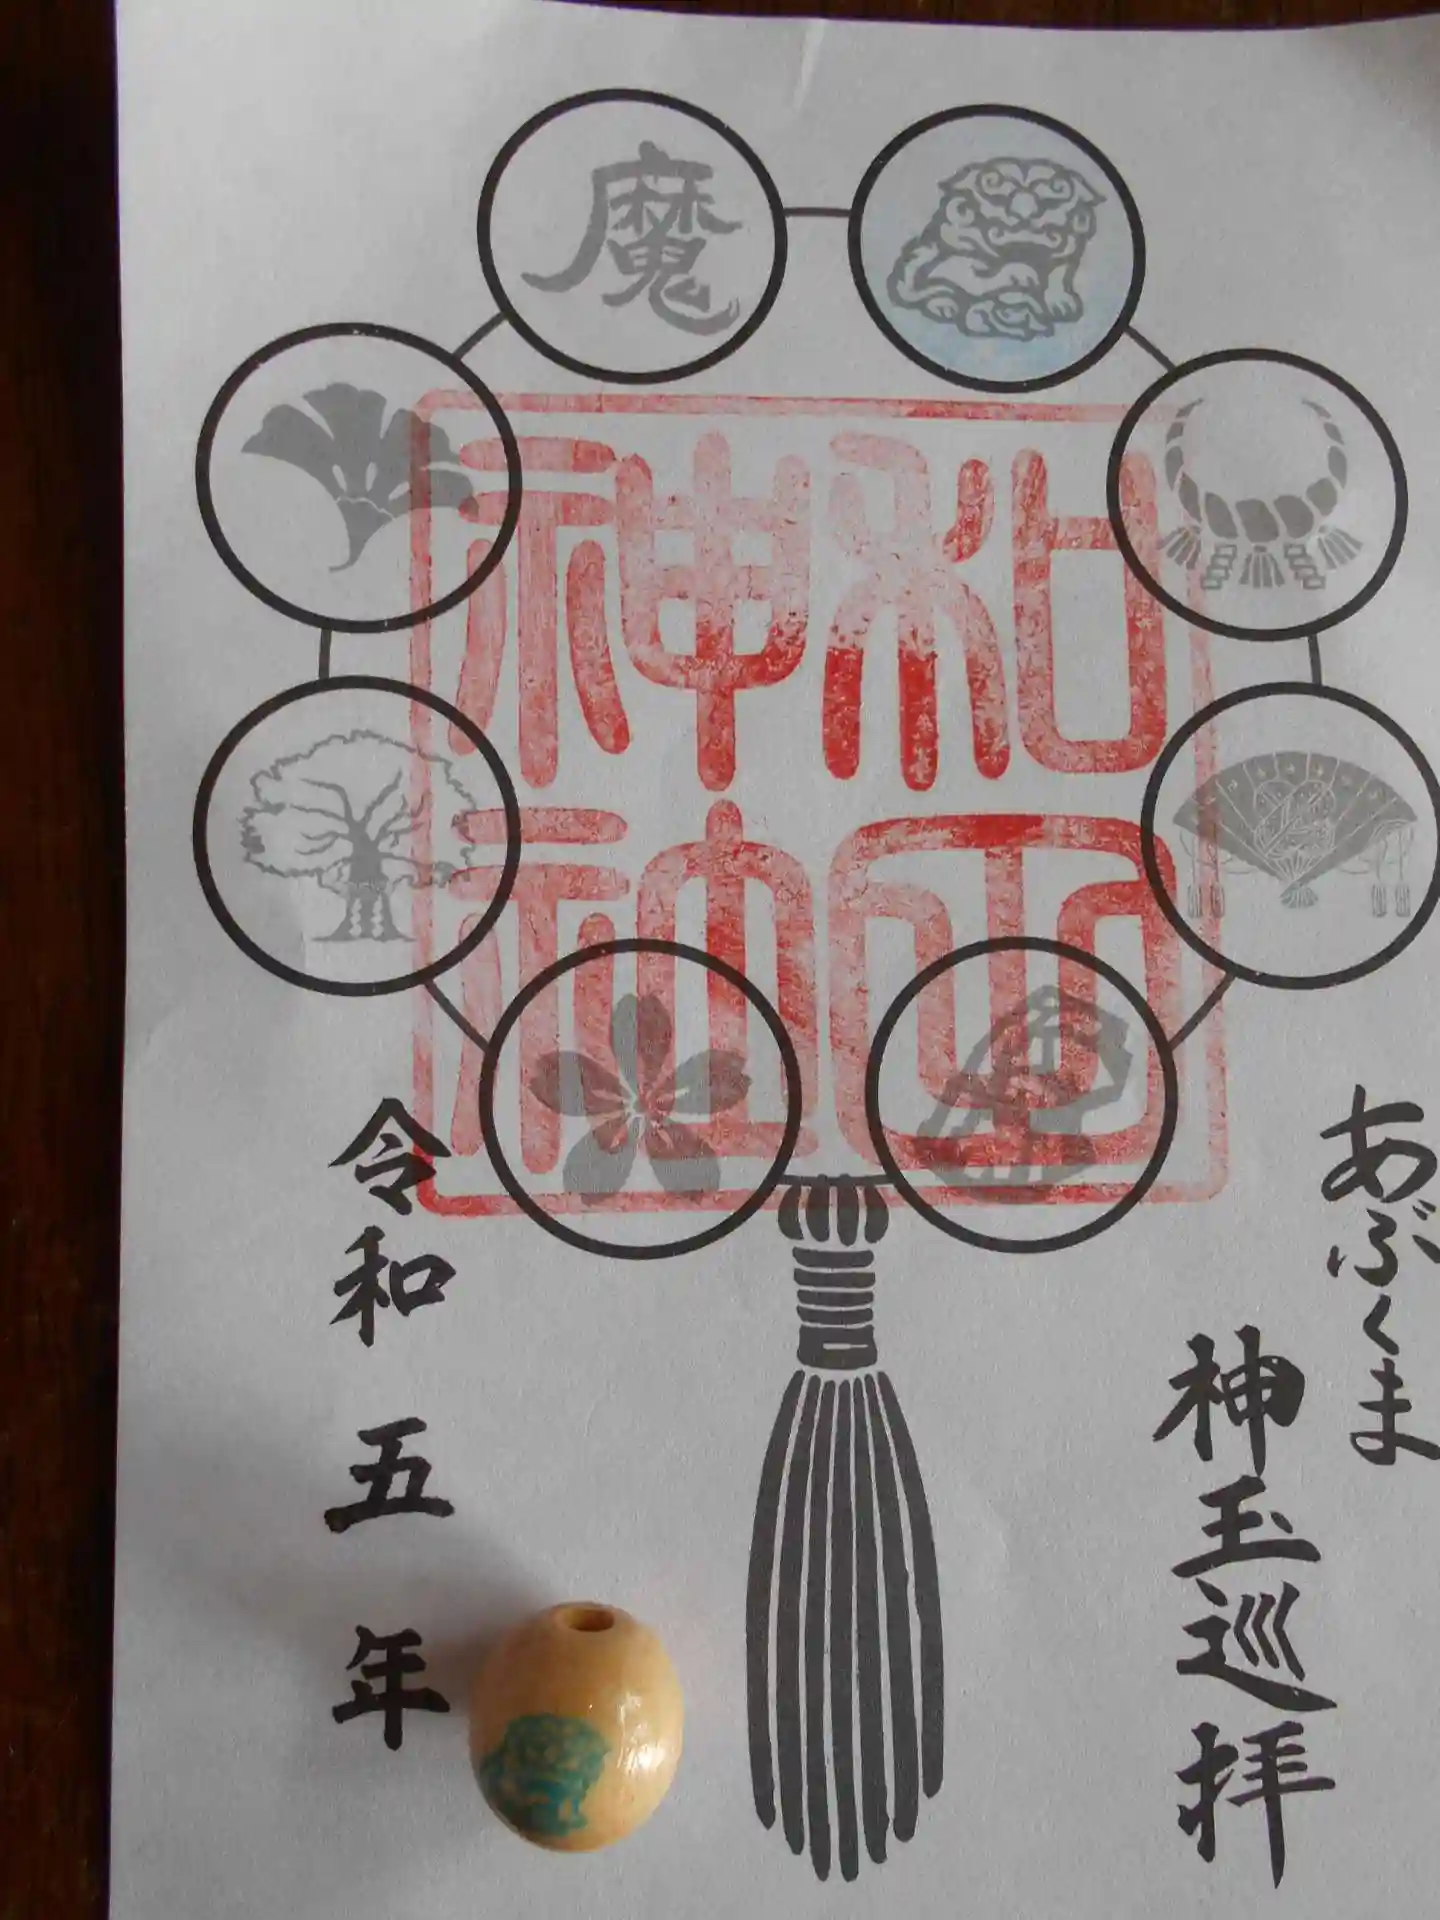 あぶくま
神玉巡拝
魔
神社
令和五年